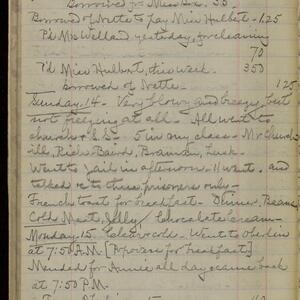 Borrowed for Miss
Borrowed of Nette to pay Miss Hulbert - 1.25
P'd Mrs Willard yesterday, for cleaning
70
P'd Miss Hulbert, this week - 3 50
borrowed of Nette - 1.25
Sunday, 14 - Very blowy and breezy, but
not freezing at all - All went to
church & S.S. - 5 in my class - Mr Church-
ill, Rich, Baird, Brandon, Lusk -
Went to jail in afternoon - 11 went - and
talked to three prisoners only -
French toast for breakfast - Dinner, Beans,
Cold Meat, Jelly, Chocolate cream -
Monday, 15. Clear cold - Went to Oberlin
at 7:50 A.M. [Popovers for breakfast]
Mended for Annie all day came back
at 7:50 P.M.